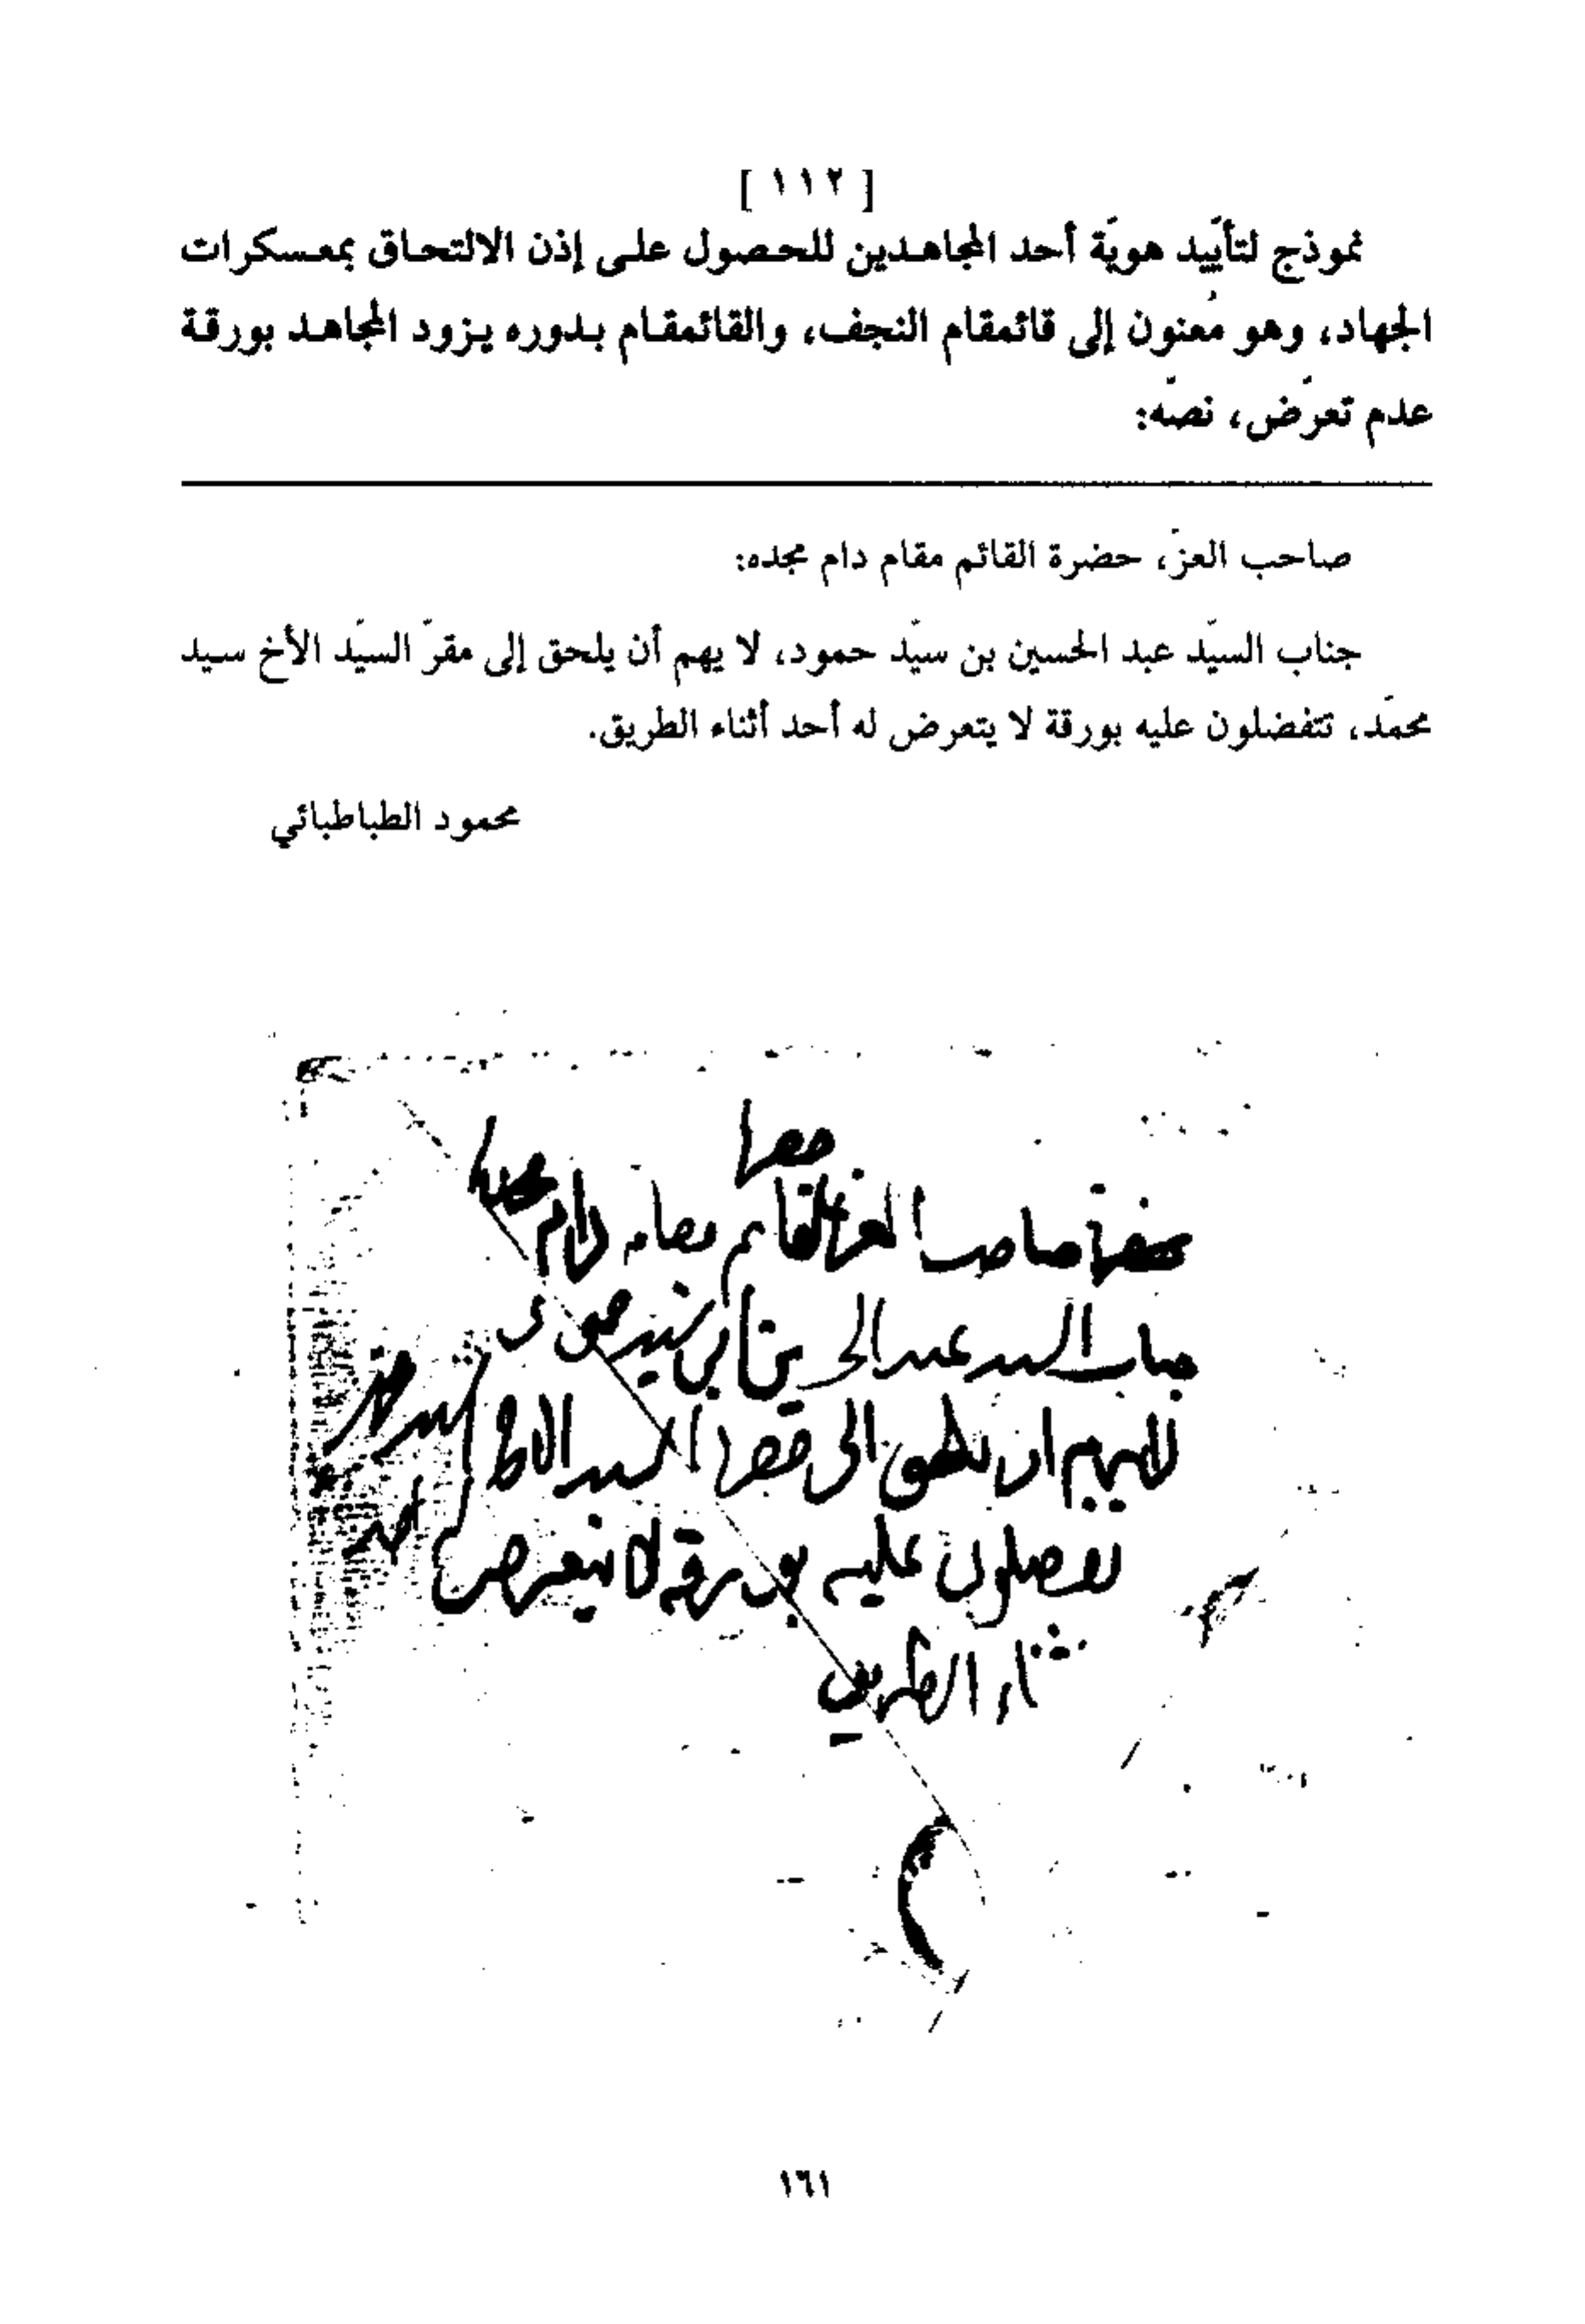 [ ١١٢ ]
نموذج لتأييد هويّة أحد المجاهدين للحصول على إذن الالتحاق بمعسكرات
الجهاد، وهو مُعنون إلى قائمقام النجف، والقائمقام بدوره يزود المجاهد بورقة
عدم تعرّض، نصّه:
صاحب العزّ، حضرة القائم مقام دام مجده:
جناب السيّد عبد الحسين بن سيّد حمود، لا يهم أن يلحق إلى مقرّ السيّد الأخ سيد
محمّد، تتفضلون عليه بورقة لا يتعرض له أحد أثناء الطريق.
محمود الطباطبائي
صاحب العز القائم مقام دام
جناب السيد عبد الحسين بن سيد حمود
ان يلحق الى السيد الاخ السيد محمد
عليه بورقة لا يتعرض له احد
الطريق
١٦١